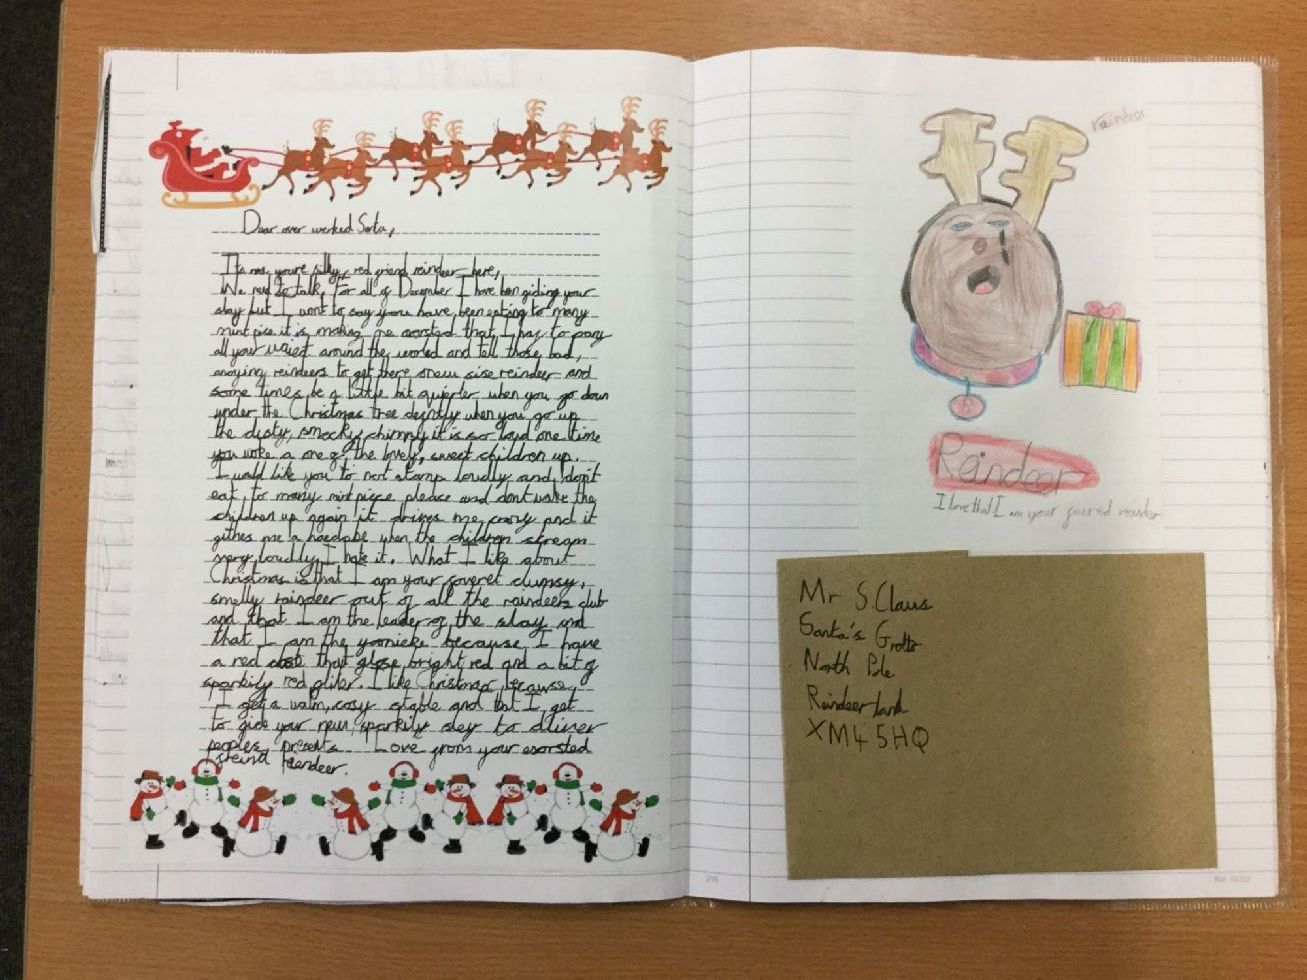 Dear over worked Santa,
It's me, youre silly, red friend reindeer here,
We need to talk, for all of December I have ben giding your
slay but I wont to say you have been eating to many
mint pise it is making me exorsted that I haf to pony
all your waist around the world and tell those bad,
anoying reindeers to get there snew sise reindeer and
some times be a little bit quieter when you go down
under the Christmas tree decntly when you go up
the dusty, smocky chimply it is so loud one time
you woke a one of the lovely, sweet children up.
I would like you to not stamp loudly and dont
eat to many mint pise please and dont wake the
children up again it drives me crazy and it
githes me a haedake when the children scream
very loudly I hate it. What I like about
Christmas is that I am your faveret clumsy,
smelly raindeer out of all the raindeers club
and that I am the leader of the slay and
that I am the yoonieke because I have
a red nose that glose bright red and a bit of
sparkily red gliter. I like Christmas because
I get a walm, cosy stable and that I get
to gide your new, sparkily sley to diliver
peoples presents Love from your exorsted
freind Reindeer.
raindeer
R
Reindeer
I love that I am your faived reindeer
Mr S.Claus
Santa's Grotto
North Pole
Reindeerland
XM4 5HQ